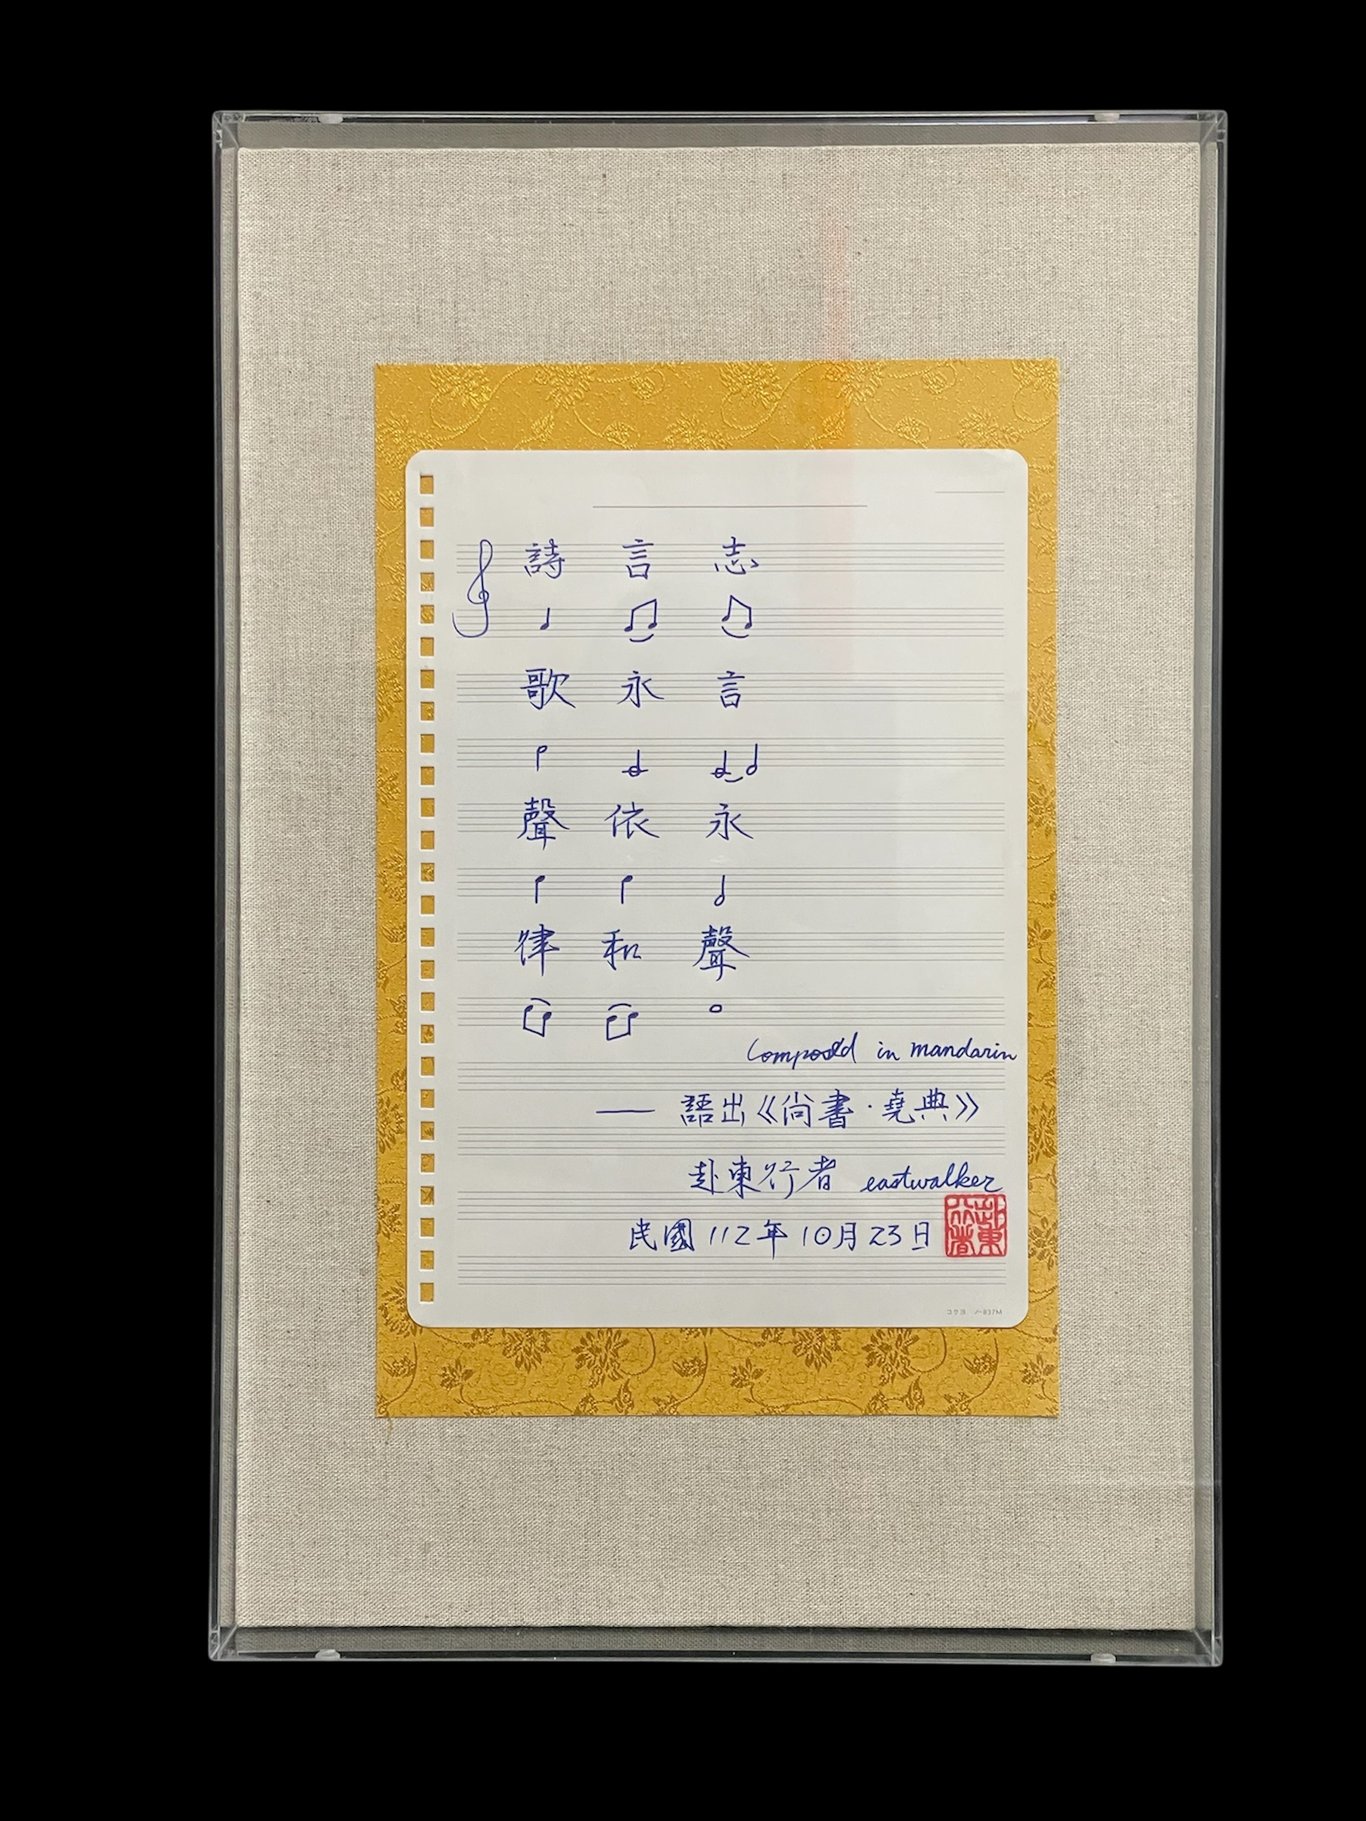 詩 言 志
歌 永 言
聲 依 永
律 和 聲
Composed in mandarin
—— 語出《尚書·堯典》
赴東行者 eastwalker
民國112年10月23日
赴東行者
コクヨ ノ-837M